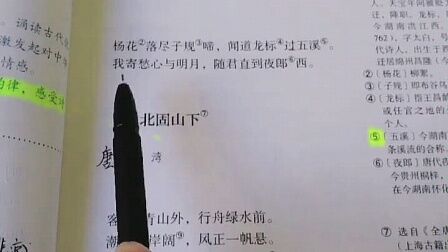 诵读古代
激发起对中
情感。
的律，感受
杨花②落尽子规③啼，闻道龙标④过五溪⑤。
我寄愁心与明月，随君直到夜郎⑥西。
北固山下⑦
湾
客 青山外，行舟绿水前。
潮 岸阔⑨，风正一帆悬。
人，天宝年
迁，降职。龙标，
762），字太白，号
代诗人，出生于
迁居绵州昌隆（今
②〔杨花〕柳絮。
③〔子规〕即布谷鸟
④〔龙标〕指王昌
或任官之地的
个人。
⑤〔五溪〕今湖南
条溪流的合称。
⑥〔夜郎〕唐代夜
今贵州桐梓，
在今湖南怀化
⑦ 选自《全
（上海古籍